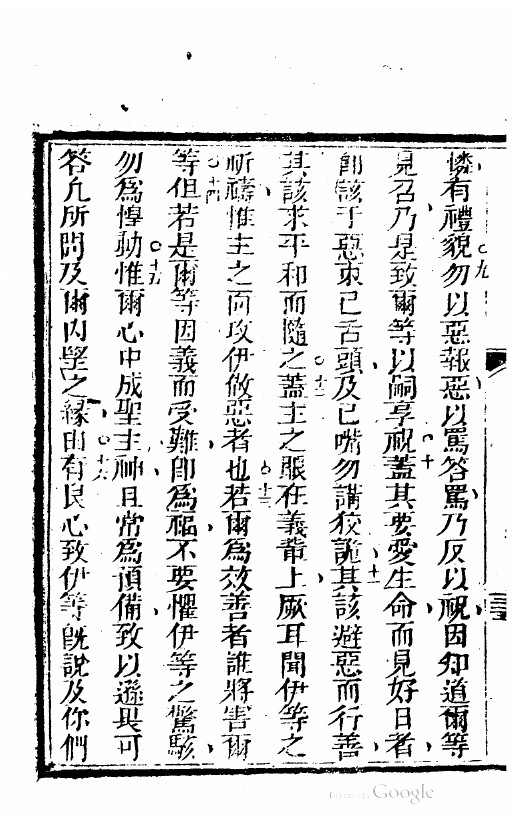 憐有禮貌勿以惡報惡以罵答罵乃反以祝因知道爾等
見召乃是致爾等以嗣享祝蓋其要愛生命而見好日者
即該于惡束已舌頭及已嘴勿講狡詭其該避惡而行善
其該求平和而隨之蓋主之眼在義軰上厥耳聞伊等之
祈禱惟主之面攻伊做惡者也若爾為效善者誰將害爾
等但若是爾等因義而受難即為福不要懼伊等之驚駭
勿為惶動惟爾心中成聖主神且常為預備致以遜畏可
答凢所問及爾內望之縁由有良心致伊等旣說及你們
九
十
十一
十二
十三
十四
十五
十六
三
Digitized by Google